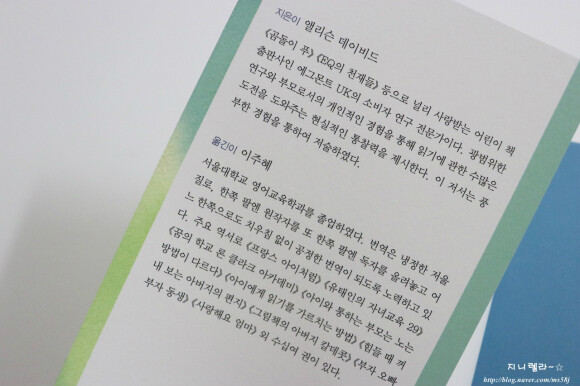 지은이 앨리슨 데이비드
《곰돌이 푸》《EQ의 천재들》 등으로 널리 사랑받는 어린이 책
출판사인 에그몬트 UK의 소비자 연구 전문가이다. 광범위한
연구와 부모로서의 개인적인 경험을 통해 읽기에 관한 수많은
도전을 도와주는 현실적인 통찰력을 제시한다. 이 저서는 풍
부한 경험을 통하여 저술하였다.
옮긴이 이주혜
서울대학교 영어교육학과를 졸업하였다. 번역은 냉정한 저울
질로, 한쪽 팔엔 원작자를 또 한쪽 팔엔 독자를 올려놓고 어
느 한쪽으로도 치우침 없이 공정한 번역이 되도록 노력하고 있
다. 주요 역서로 《프랑스 아이처럼》《유태인의 자녀교육 29》
《꿈의 학교 론 클라크 아카데미》《아이와 통하는 부모는 노는
방법이 다르다》《아이에게 읽기를 가르치는 방법》《힘들 때 꺼
내 보는 아버지의 편지》《그림책의 아버지 칼데콧》《부자 오빠
부자 동생》《사랑해요 엄마》 외 수십여 권이 있다.
지니렐라~☆
http://blog.naver.com/ms58j